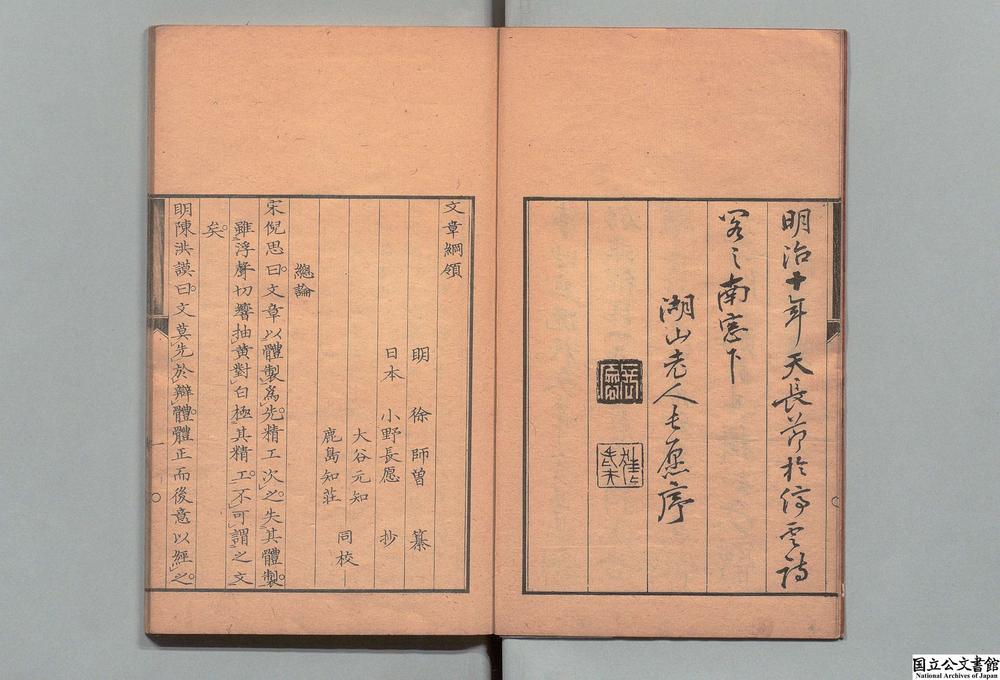 明治十年天長節於停雲詩
閣之南窓下
湖山老人長愿序
文章綱領
明 徐師曽 纂
日本 小野長愿 抄
大谷元知
鹿島知荘
同校
總論
宋倪思曰。文章以體製爲先。精工次之。失其體製。
雖浮聲切響抽黄對白極其精工。不可謂之文
矣。
明陳洪謨曰。文莫先於辯體。體正而後意以經之。
国立公文書館
National Archives of Japan